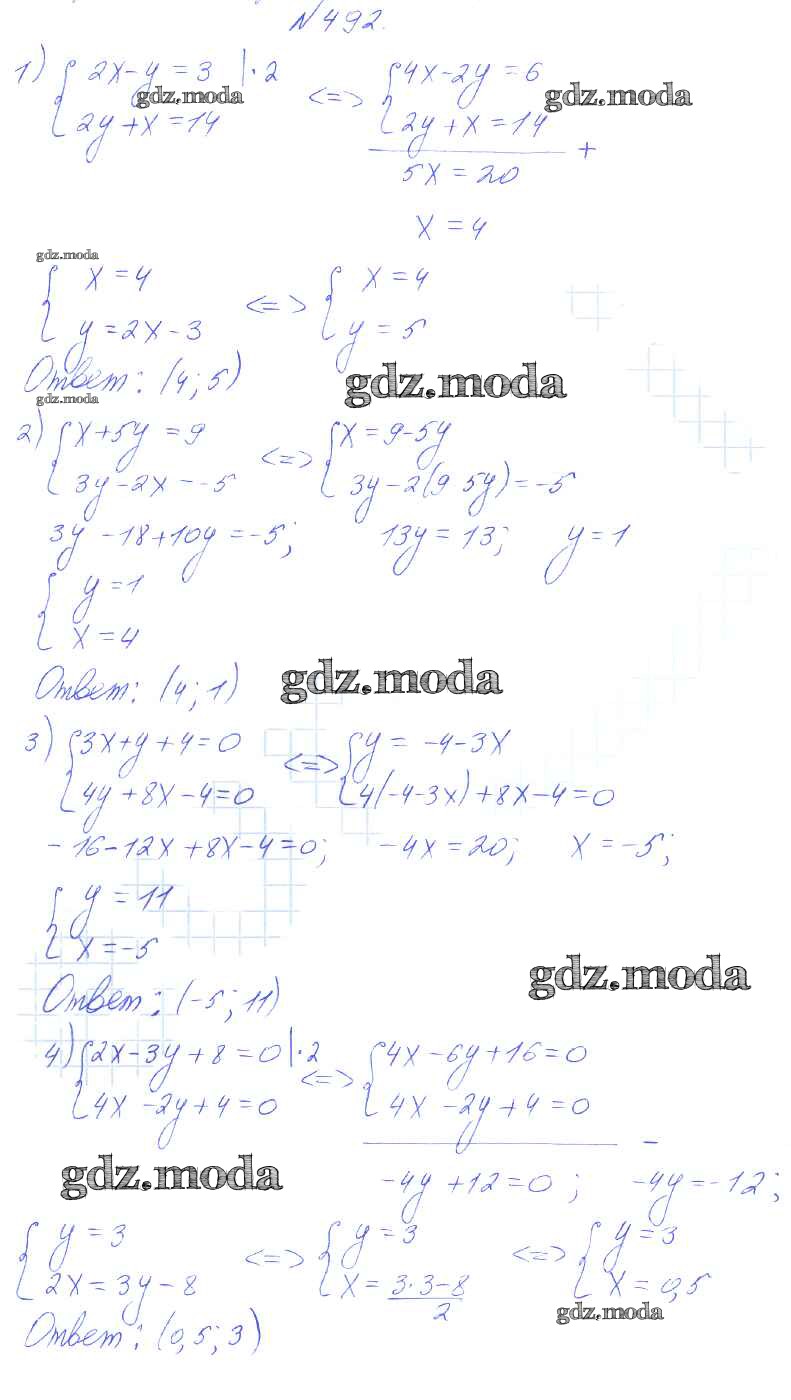 № 492.
1) { 2x - y = 3 | · 2 <=> { 4x - 2y = 6
gdz.moda gdz.moda
2y + x = 14 2y + x = 14
5x = 20 +
x = 4
gdz.moda
{ x = 4 <=> { x = 4
y = 2x - 3 y = 5
Ответ: (4; 5) gdz.moda
gdz.moda
2) { x + 5y = 9 <=> { x = 9 - 5y
3y - 2x = -5 3y - 2(9 5y) = -5
3y - 18 + 10y = -5; 13y = 13; y = 1
{ y = 1
x = 4
Ответ: (4; 1) gdz.moda
3) { 3x + y + 4 = 0 <=> { y = -4 - 3x
4y + 8x - 4 = 0 4(-4 - 3x) + 8x - 4 = 0
-16 - 12x + 8x - 4 = 0; -4x = 20; x = -5;
{ y = 11
x = -5
gdz.moda
Ответ: (-5; 11)
4) { 2x - 3y + 8 = 0 | · 2 <=> { 4x - 6y + 16 = 0
4x - 2y + 4 = 0 4x - 2y + 4 = 0
-
gdz.moda -4y + 12 = 0; -4y = -12;
{ y = 3 <=> { y = 3 <=> { y = 3
2x = 3y - 8 x = (3·3-8)/2 x = 0,5
gdz.moda
Ответ: (0,5; 3)